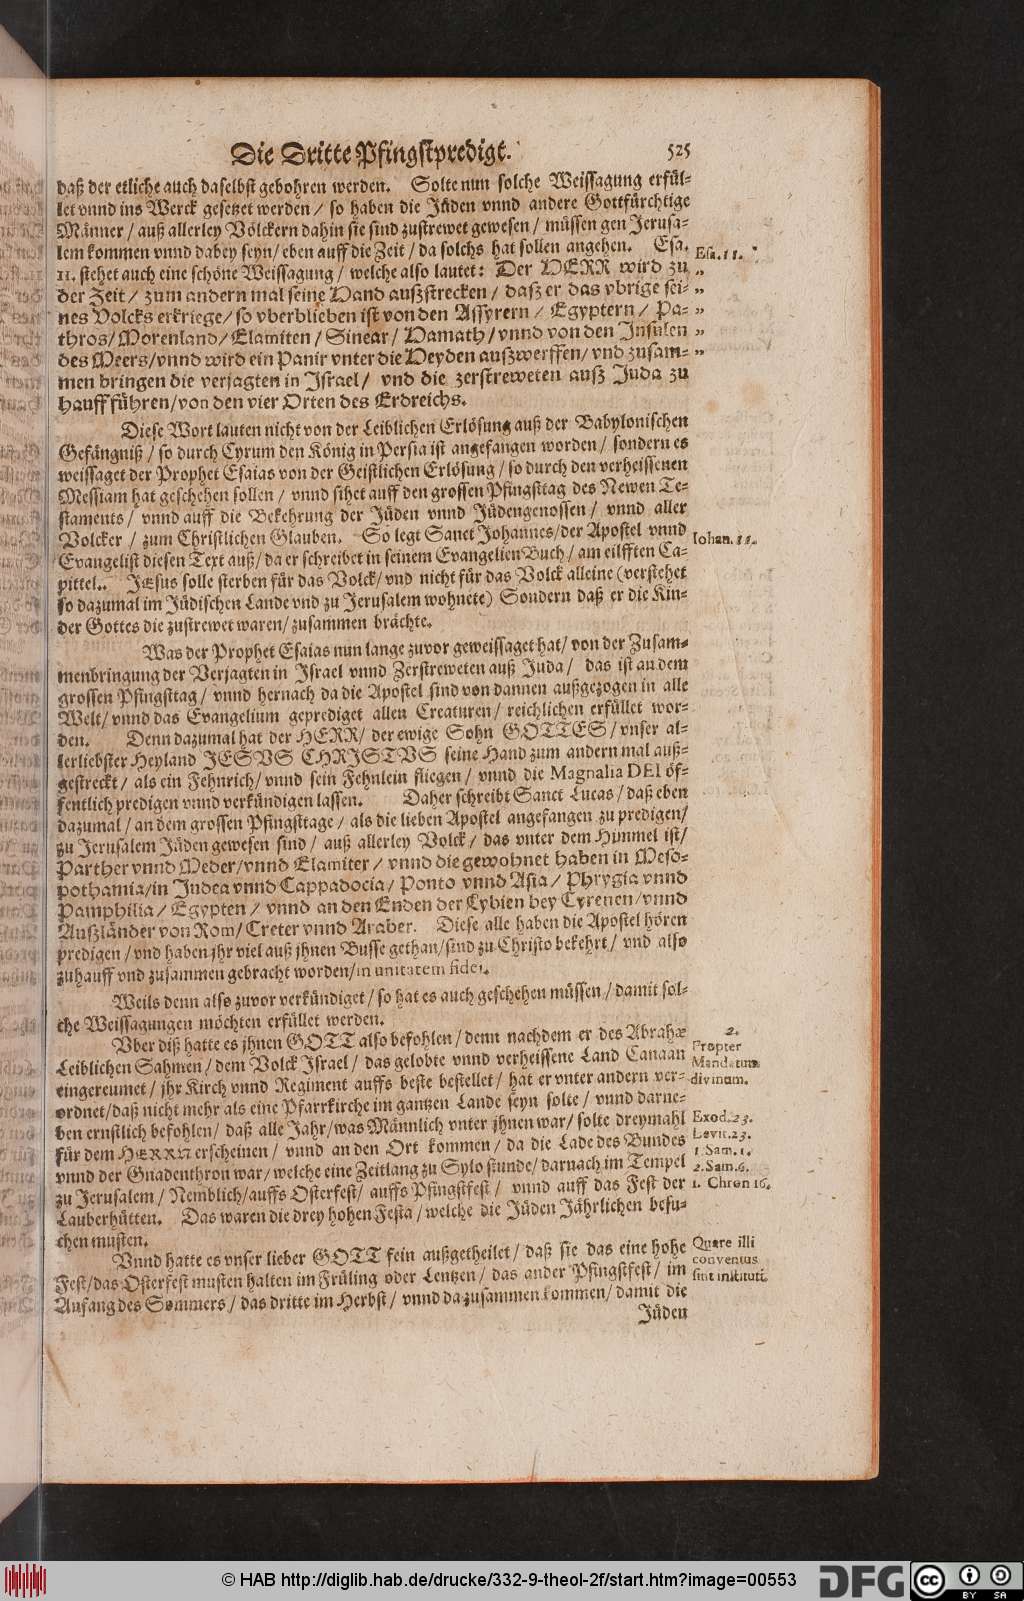 Die Dritte Pfingstpredigt. 525
daß der etliche auch daselbst gebohren werden. Solte nun solche Weissagung erfül-
let vnnd ins Werck gesetzet werden / so haben die Jüden vnnd andere Gottfürchtige
Männer / auß allerley Völckern dahin sie sind zustrewet gewesen / müssen gen Jerusa-
lem kommen vnnd dabey seyn / eben auff die Zeit / da solchs hat sollen angehen. Esa.
11. stehet auch eine schöne Weissagung / welche also lautet: Der HERR wird zu
der Zeit / zum andern mal seine Hand außstrecken / daß er das vbrige sei-
nes Volcks erkriege / so vberblieben ist von den Assyrern / Egyptern / Pa-
thros / Morenland / Elamiten / Sinear / Hamath / vnnd von den Insulen
des Meers / vnnd wird ein Panir vnter die Heyden außwerffen / vnd zusam-
men bringen die verjagten in Israel / vnd die zerstreweten auß Juda zu
hauff führen / von den vier Orten des Erdreichs.
Esa. 11.
„
„
„
„
Diese Wort lauten nicht von der Leiblichen Erlösung auß der Babylonischen
Gefängniß / so durch Cyrum den König in Persia ist angefangen worden / sondern es
weissaget der Prophet Esaias von der Geistlichen Erlösung / so durch den verheissenen
Messiam hat geschehen sollen / vnnd sihet auff den grossen Pfingsttag des Newen Te-
staments / vnnd auff die Bekehrung der Jüden vnnd Jüdengenossen / vnnd aller
Volcker / zum Christlichen Glauben. So legt Sanct Johannes / der Apostel vnnd
Evangelist diesen Text auß / da er schreibet in seinem Evangelien Buch / am eilfften Ca-
pittel. JEsus solle sterben für das Volck / vnd nicht für das Volck alleine (verstehet
so dazumal im Jüdischen Lande vnd zu Jerusalem wohnete) Sondern daß er die Kin-
der Gottes die zustrewet waren / zusammen brächte.
Iohan. 11.
Was der Prophet Esaias nun lange zuvor geweissaget hat / von der Zusam-
menbringung der Verjagten in Israel vnnd Zerstreweten auß Juda / das ist an dem
grossen Pfingsttag / vnnd hernach da die Apostel sind von dannen außgezogen in alle
Welt / vnnd das Evangelium geprediget allen Creaturen / reichlichen erfüllet wor-
den. Denn dazumal hat der HERR / der ewige Sohn GOTTES / vnser al-
lerliebster Heyland JESVS CHRISTVS seine Hand zum andern mal auß-
gestreckt / als ein Fehnrich / vnnd sein Fehnlein fliegen / vnnd die Magnalia DEI öf-
fentlich predigen vnnd verkündigen lassen. Daher schreibt Sanct Lucas / daß eben
dazumal / an dem grossen Pfingsttage / als die lieben Apostel angefangen zu predigen /
zu Jerusalem Jüden gewesen sind / auß allerley Volck / das vnter dem Himmel ist /
Parther vnnd Meder / vnnd Elamiter / vnnd die gewohnet haben in Meso-
pothamia / in Judea vnnd Cappadocia / Ponto vnnd Asia / Phrygia vnnd
Pamphilia / Egypten / vnnd an den Enden der Lybien bey Cyrenen / vnnd
Außländer von Rom / Creter vnnd Araber. Diese alle haben die Apostel hören
predigen / vnd haben jhr viel auß jhnen Busse gethan / sind zu Christo bekehrt / vnd also
zuhauff vnd zusammen gebracht worden / in unitatem fidei.
Weils denn also zuvor verkündiget / so hat es auch geschehen müssen / damit sol-
che Weissagungen möchten erfüllet werden.
Vber diß hatte es jhnen GOTT also befohlen / denn nachdem er des Abrahæ
Leiblichen Sahmen / dem Volck Israel / das gelobte vnnd verheissene Land Canaan
eingereumet / jhr Kirch vnnd Regiment auffs beste bestellet / hat er vnter andern ver-
ordnet / daß nicht mehr als eine Pfarrkirche im gantzen Lande seyn solte / vnnd darne-
ben ernstlich befohlen / daß alle Jahr / was Männlich vnter jhnen war / solte dreymahl
für dem HERRN erscheinen / vnnd an den Ort kommen / da die Lade des Bundes
vnnd der Gnadenthron war / welche eine Zeitlang zu Sylo stunde / darnach im Tempel
zu Jerusalem / Nemblich / auffs Osterfest / auffs Pfingstfest / vnnd auff das Fest der
Lauberhütten. Das waren die drey hohen Festa / welche die Jüden Jährlichen besu-
chen musten.
2.
Propter
Mandatum
divinum.
Exod. 23.
Levit. 23.
1. Sam. 1.
2. Sam. 6.
1. Chron 16.
Vnnd hatte es vnser lieber GOTT fein außgetheilet / daß sie das eine hohe
Fest / das Osterfest musten halten im Früling oder Lentzen / das ander Pfingstfest / im
Anfang des Sommers / das dritte im Herbst / vnnd da zusammen kommen / damit die
Jüden
Quare illi
conventus
sint instituti.
© HAB http://diglib.hab.de/drucke/332-9-theol-2f/start.htm?image=00553
DFG
cc
BY SA